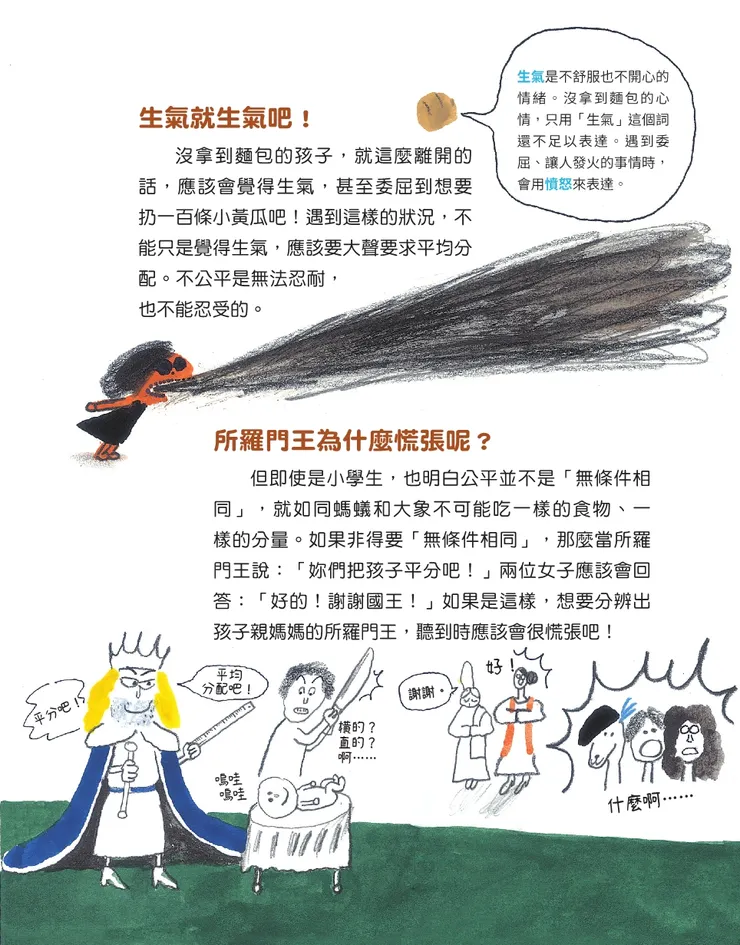 生氣就生氣吧！
沒拿到麵包的孩子，就這麼離開的
話，應該會覺得生氣，甚至委屈到想要
扔一百條小黃瓜吧！遇到這樣的狀況，不
能只是覺得生氣，應該要大聲要求平均分
配。不公平是無法忍耐，
也不能忍受的。
生氣是不舒服也不開心的
情緒。沒拿到麵包的心
情，只用「生氣」這個詞
還不足以表達。遇到委
屈、讓人發火的事情時，
會用憤怒來表達。
所羅門王為什麼慌張呢？
但即使是小學生，也明白公平並不是「無條件相
同」，就如同螞蟻和大象不可能吃一樣的食物、一
樣的分量。如果非得要「無條件相同」，那麼當所羅
門王說：「妳們把孩子平分吧！」兩位女子應該會回
答：「好的！謝謝國王！」如果是這樣，想要分辨出
孩子親媽媽的所羅門王，聽到時應該會很慌張吧！
平分吧!?
平均
分配吧！
橫的？
直的？
啊⋯⋯
嗚哇
嗚哇
謝謝。
好！
什麼啊⋯⋯